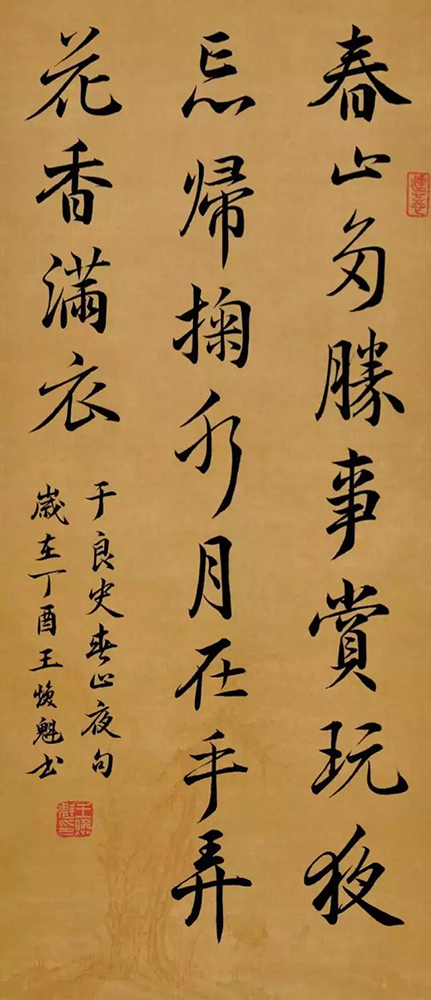 春山多勝事賞玩夜
忘歸掬水月在手弄
花香滿衣
于良史春山夜句
歲在丁酉王煥魁书